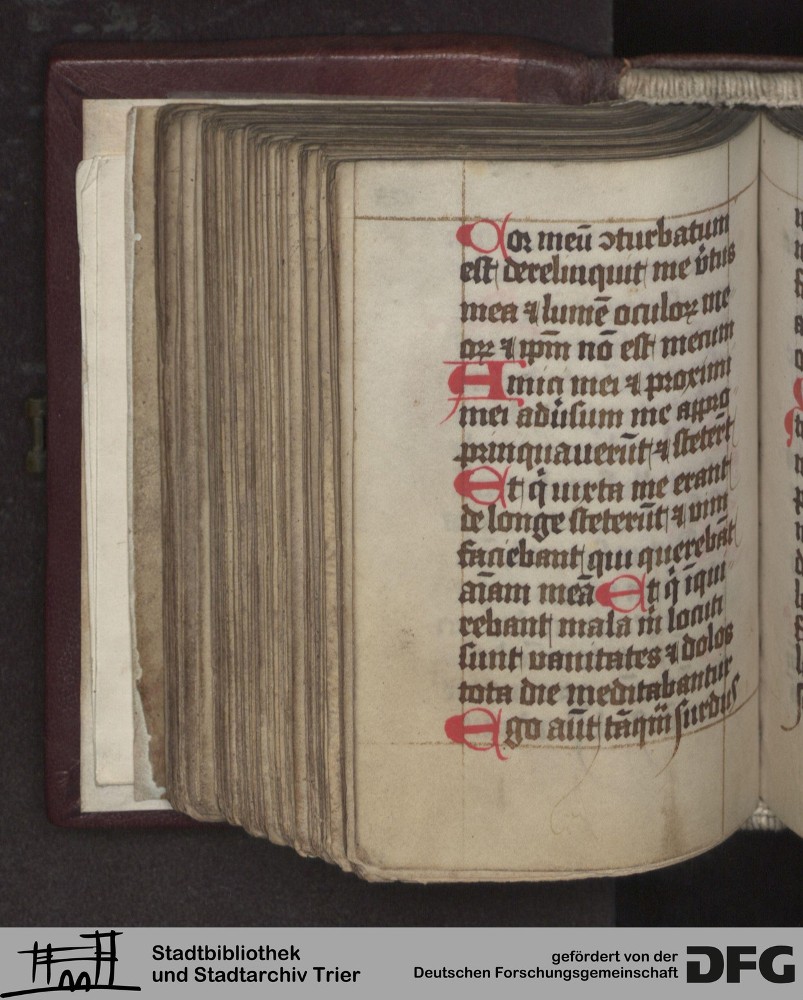 Cor meū ↄturbatum
est derelinquit me v̓tus
mea ⁊ lumē oculoꝝ me
oꝝ ⁊ ip̄m nō est mecum
Amici mei ⁊ proximi
mei adu̓sum me appro
pinquauerūt ⁊ steter̄t
Et q̇ iuxta me erant
de longe steterūt ⁊ vim
faciebant qui querebāt
aīam meā Et q̇ īqui
rebant mala m̄ locuti
sunt vanitates ⁊ dolos
tota die meditabantur
Ego aūt tāqm̄ surdus
Stadtbibliothek
und Stadtarchiv Trier
gefördert von der
Deutschen Forschungsgemeinschaft
DFG